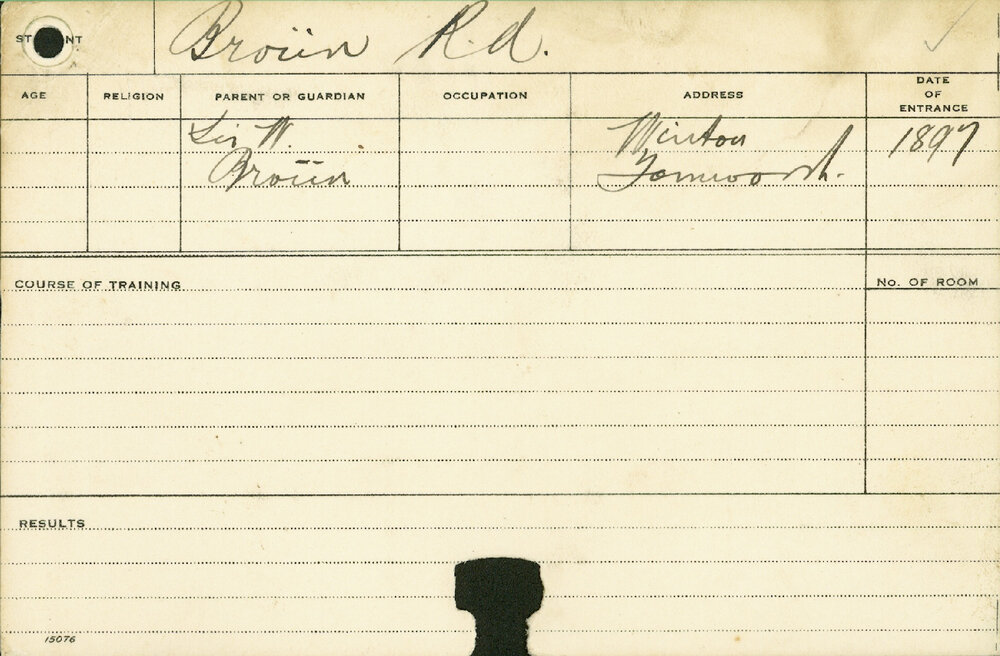 STUDENT Broün R. d.
AGE RELIGION PARENT OR GUARDIAN OCCUPATION ADDRESS DATE OF ENTRANCE
Sir W. Winton 1897
Broün Tamworth.
COURSE OF TRAINING No. OF ROOM
RESULTS
15076